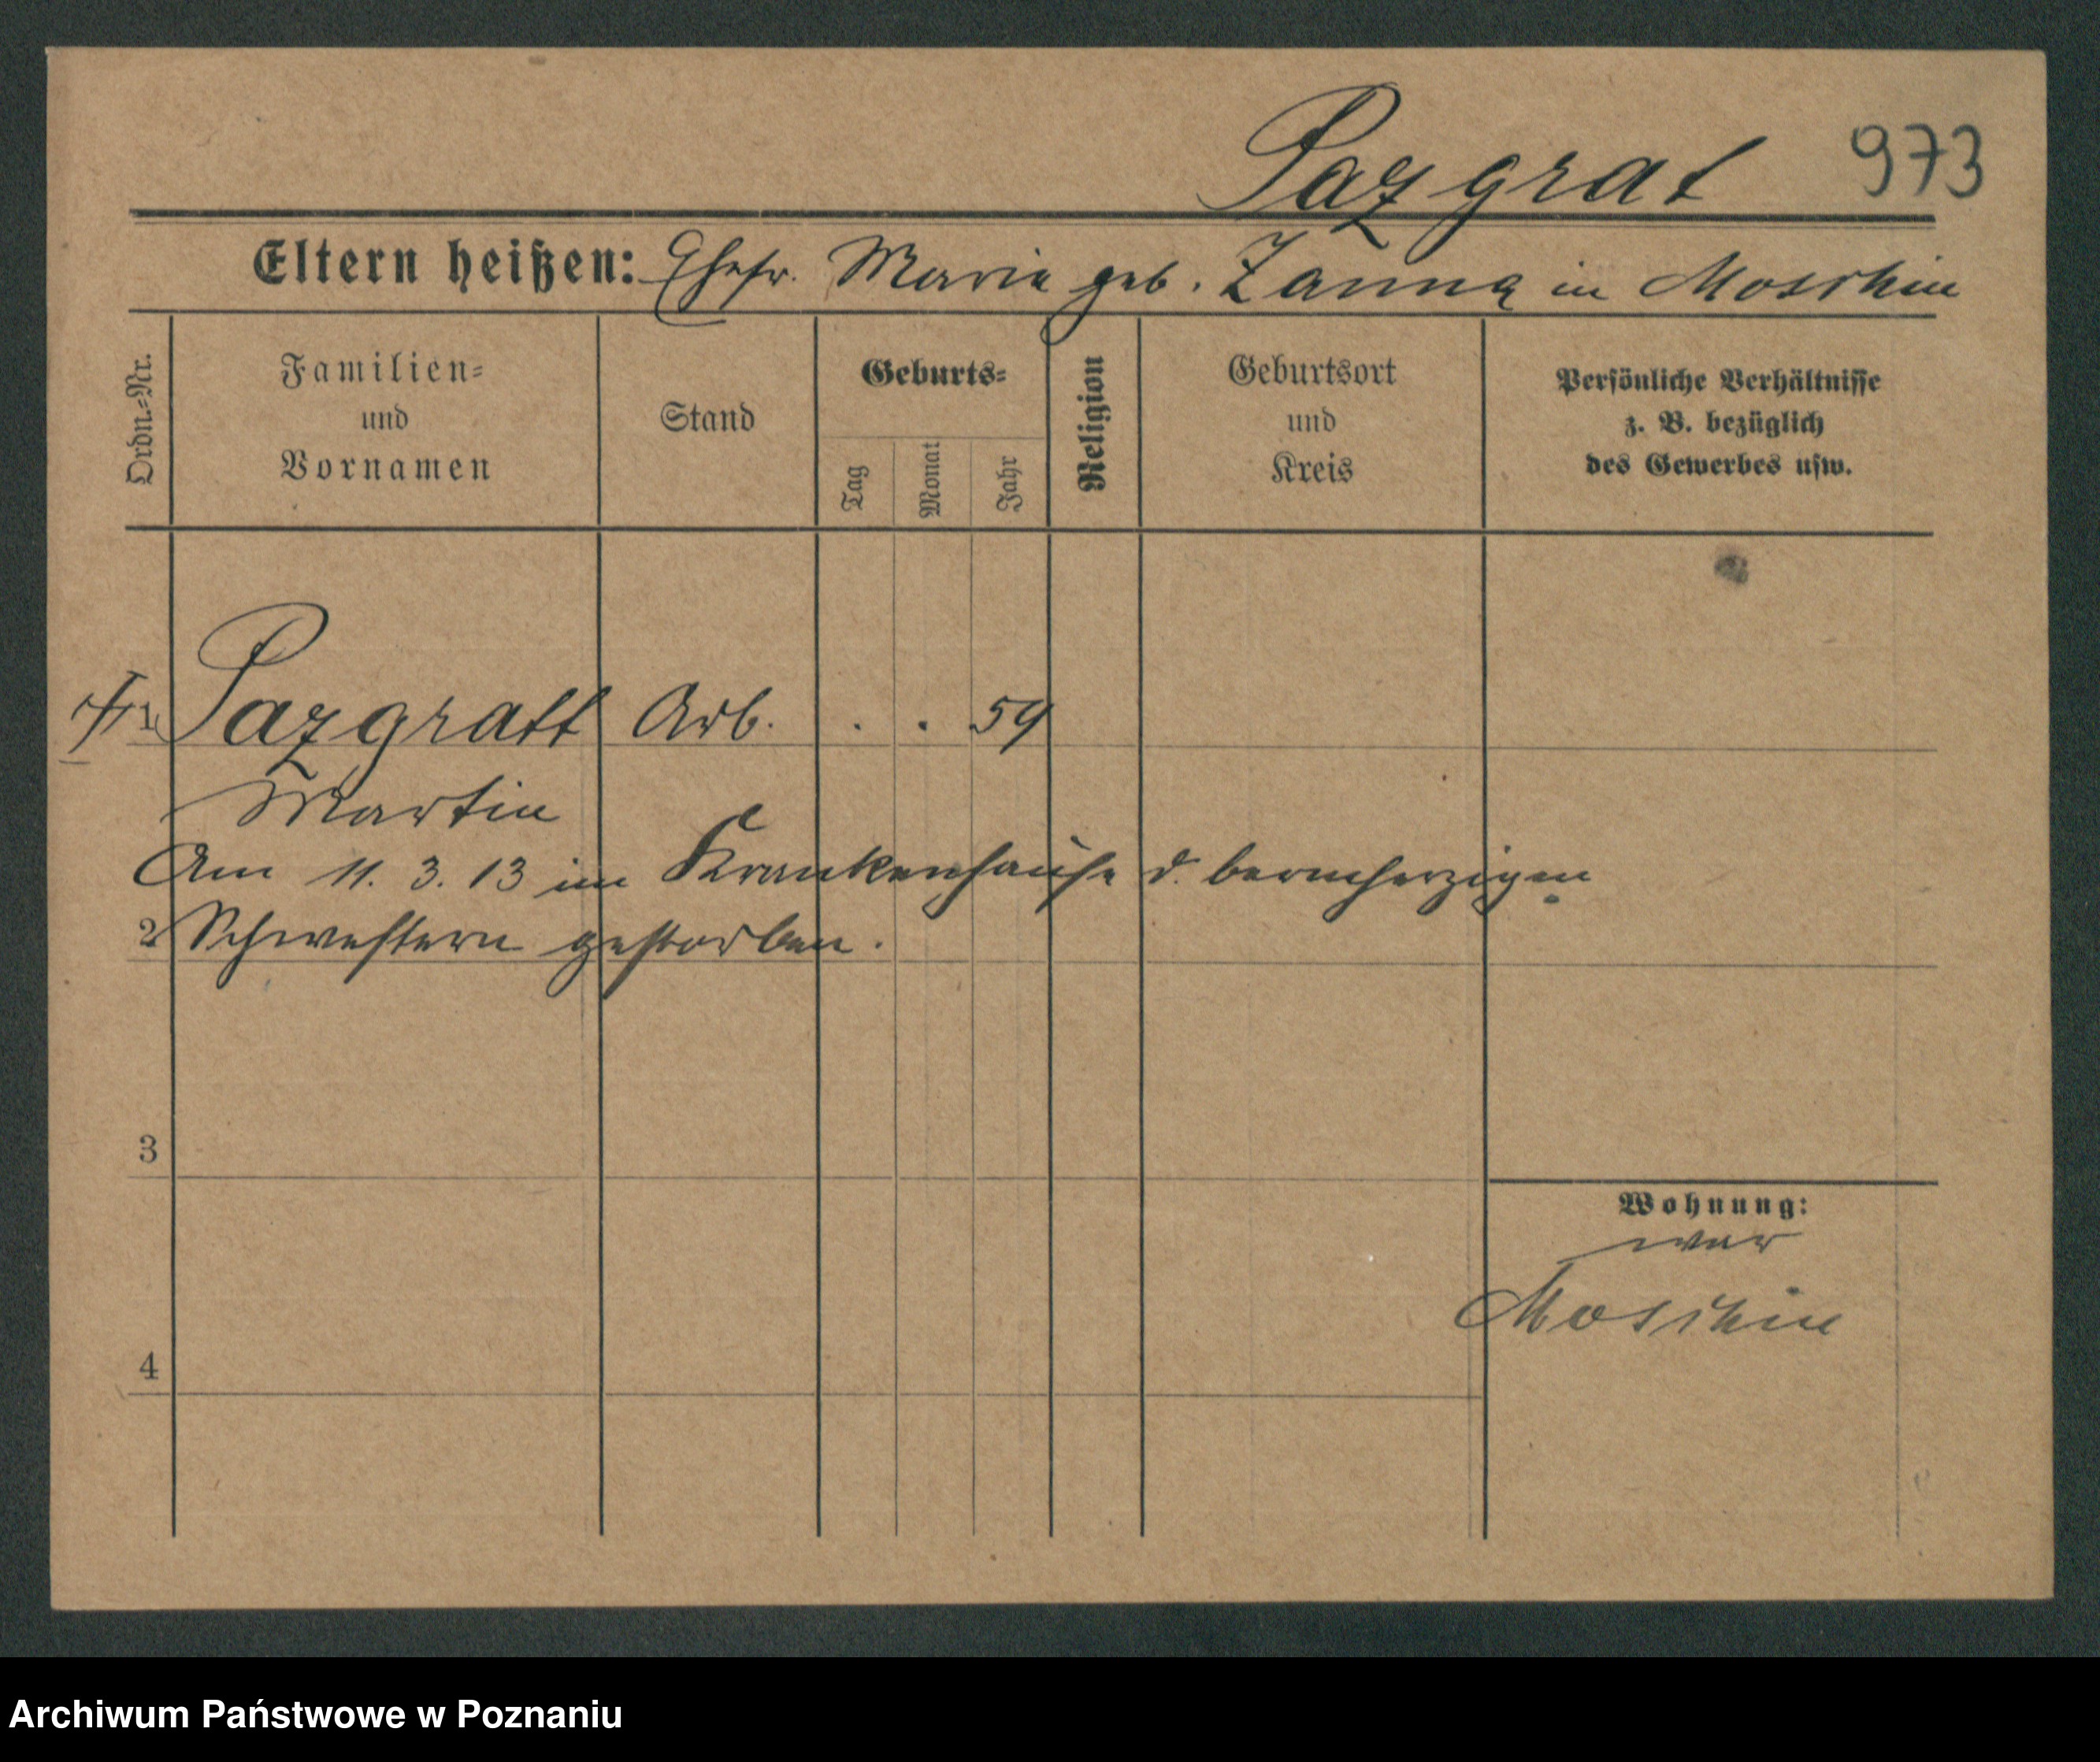 Pazgrat 973
Eltern heißen: Ehefr. Marie geb. Zanna in Moschin
Ordn.-Nr.
Familien-
und
Vornamen
Stand
Geburts-
Tag
Monat
Jahr
Religion
Geburtsort
und
Kreis
Persönliche Verhältnisse
z. B. bezüglich
des Gewerbes usw.
1 Pazgratt Arb. . . 59
Martin
Am 11. 3. 13 im Krankenhause d. barmherzigen
2 Schwestern gestorben.
3
Wohnung:
war
Moschin
4
Archiwum Państwowe w Poznaniu